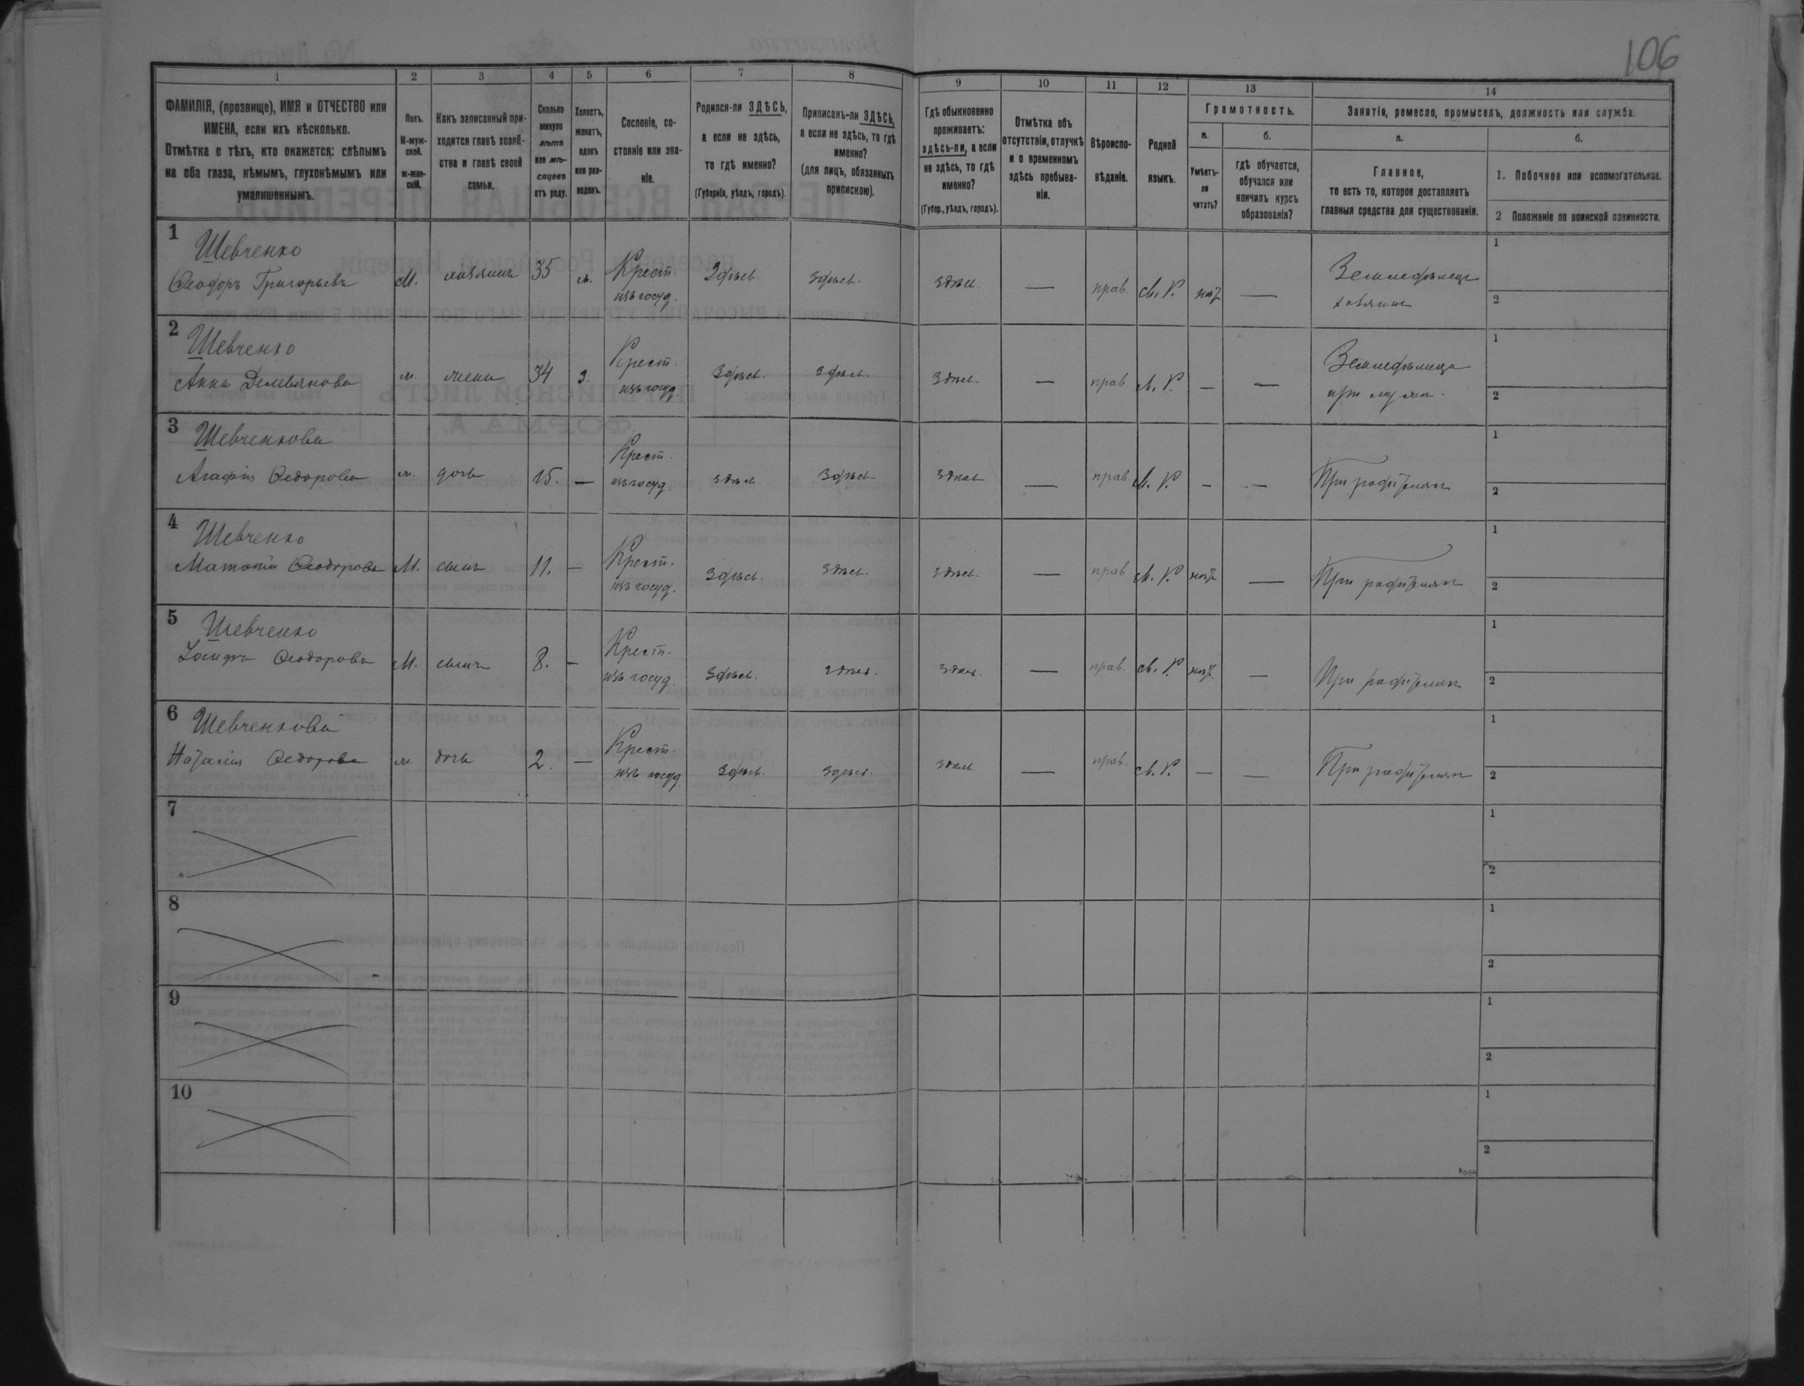 106
1 2 3 4 5 6 7 8 9 10 11 12 13 14
ФАМИЛІЯ, (прозвище), ИМЯ и ОТЧЕСТВО или
ИМЕНА, если ихъ нѣсколько.
Отмѣтка о тѣхъ, кто окажется: слѣпымъ
на оба глаза, нѣмымъ, глухонѣмымъ или
умалишеннымъ.
Полъ.
М-муж-
ской.
ж-жен-
скій.
Какъ записанный при-
ходится главѣ хозяй-
ства и главѣ своей
семьи.
Сколько
минуло
лѣтъ
или мѣ-
сяцевъ
отъ роду.
Холостъ,
женатъ,
вдовъ
или раз-
веденъ.
Сословіе, со-
стояніе или зва-
ніе.
Родился-ли ЗДѢСЬ,
а если не здѣсь,
то гдѣ именно?
(Губернія, уѣздъ, городъ).
Приписанъ-ли ЗДѢСЬ,
а если не здѣсь, то гдѣ
именно?
(для лицъ, обязанныхъ
припискою).
Гдѣ обыкновенно
проживаетъ:
здѣсь-ли, а если
не здѣсь, то гдѣ
именно?
(Губер., уѣздъ, городъ).
Отмѣтка объ
отсутствіи, отлучкѣ
и о временномъ
здѣсь пребыва-
ніи.
Вѣроиспо-
вѣданіе.
Родной
языкъ.
Грамотность.
а.
Умѣетъ-
ли
читать?
б.
гдѣ обучается,
обучался или
кончилъ курсъ
образованія?
Занятія, ремесло, промыселъ, должность или служба.
а.
Главное,
то есть то, которое доставляетъ
главныя средства для существованія.
б.
1. Побочное или вспомогательное.
2 Положеніе по воинской повинности.
1
Шевченко
Ѳеодоръ Григорьевъ М. хозяинъ 35 ж. Крест. изъ госуд. Здѣсь здѣсь. здѣсь. — прав. М. Р. нѣт —
Земледѣлецъ
хозяинъ
1
2
2
Шевченко
Анна Демьянова ж. жена 34 з. Крест. изъ госуд. Здѣсь. здѣсь. здѣсь. — прав. М. Р. — —
Земледѣлица
при мужѣ.
1
2
3
Шевченкова
Агафія Ѳедорова ж. дочь 15. — Крест. изъ госуд. здѣсь. Здѣсь здѣсь — прав М. Р. — —
При родителяхъ
1
2
4
Шевченко
Ѳеодоровъ М. сынъ 11. — Крест. изъ госуд. Здѣсь. здѣсь. здѣсь. — прав М. Р. нѣт —
При родителяхъ
1
2
5
Шевченко
Ѳеодоровъ М. сынъ 8. — Крест. изъ госуд. Здѣсь. здѣсь. здѣсь. — прав. М. Р. нѣт. —
При родителяхъ
1
2
6
Шевченкова
Наталія Ѳедорова ж. дочь 2. — Крест. изъ госуд Здѣсь. Здѣсь. здѣсь — прав. М. Р. — —
При родителяхъ
1
2
7
1
2
8
1
2
9
1
2
10
1
2